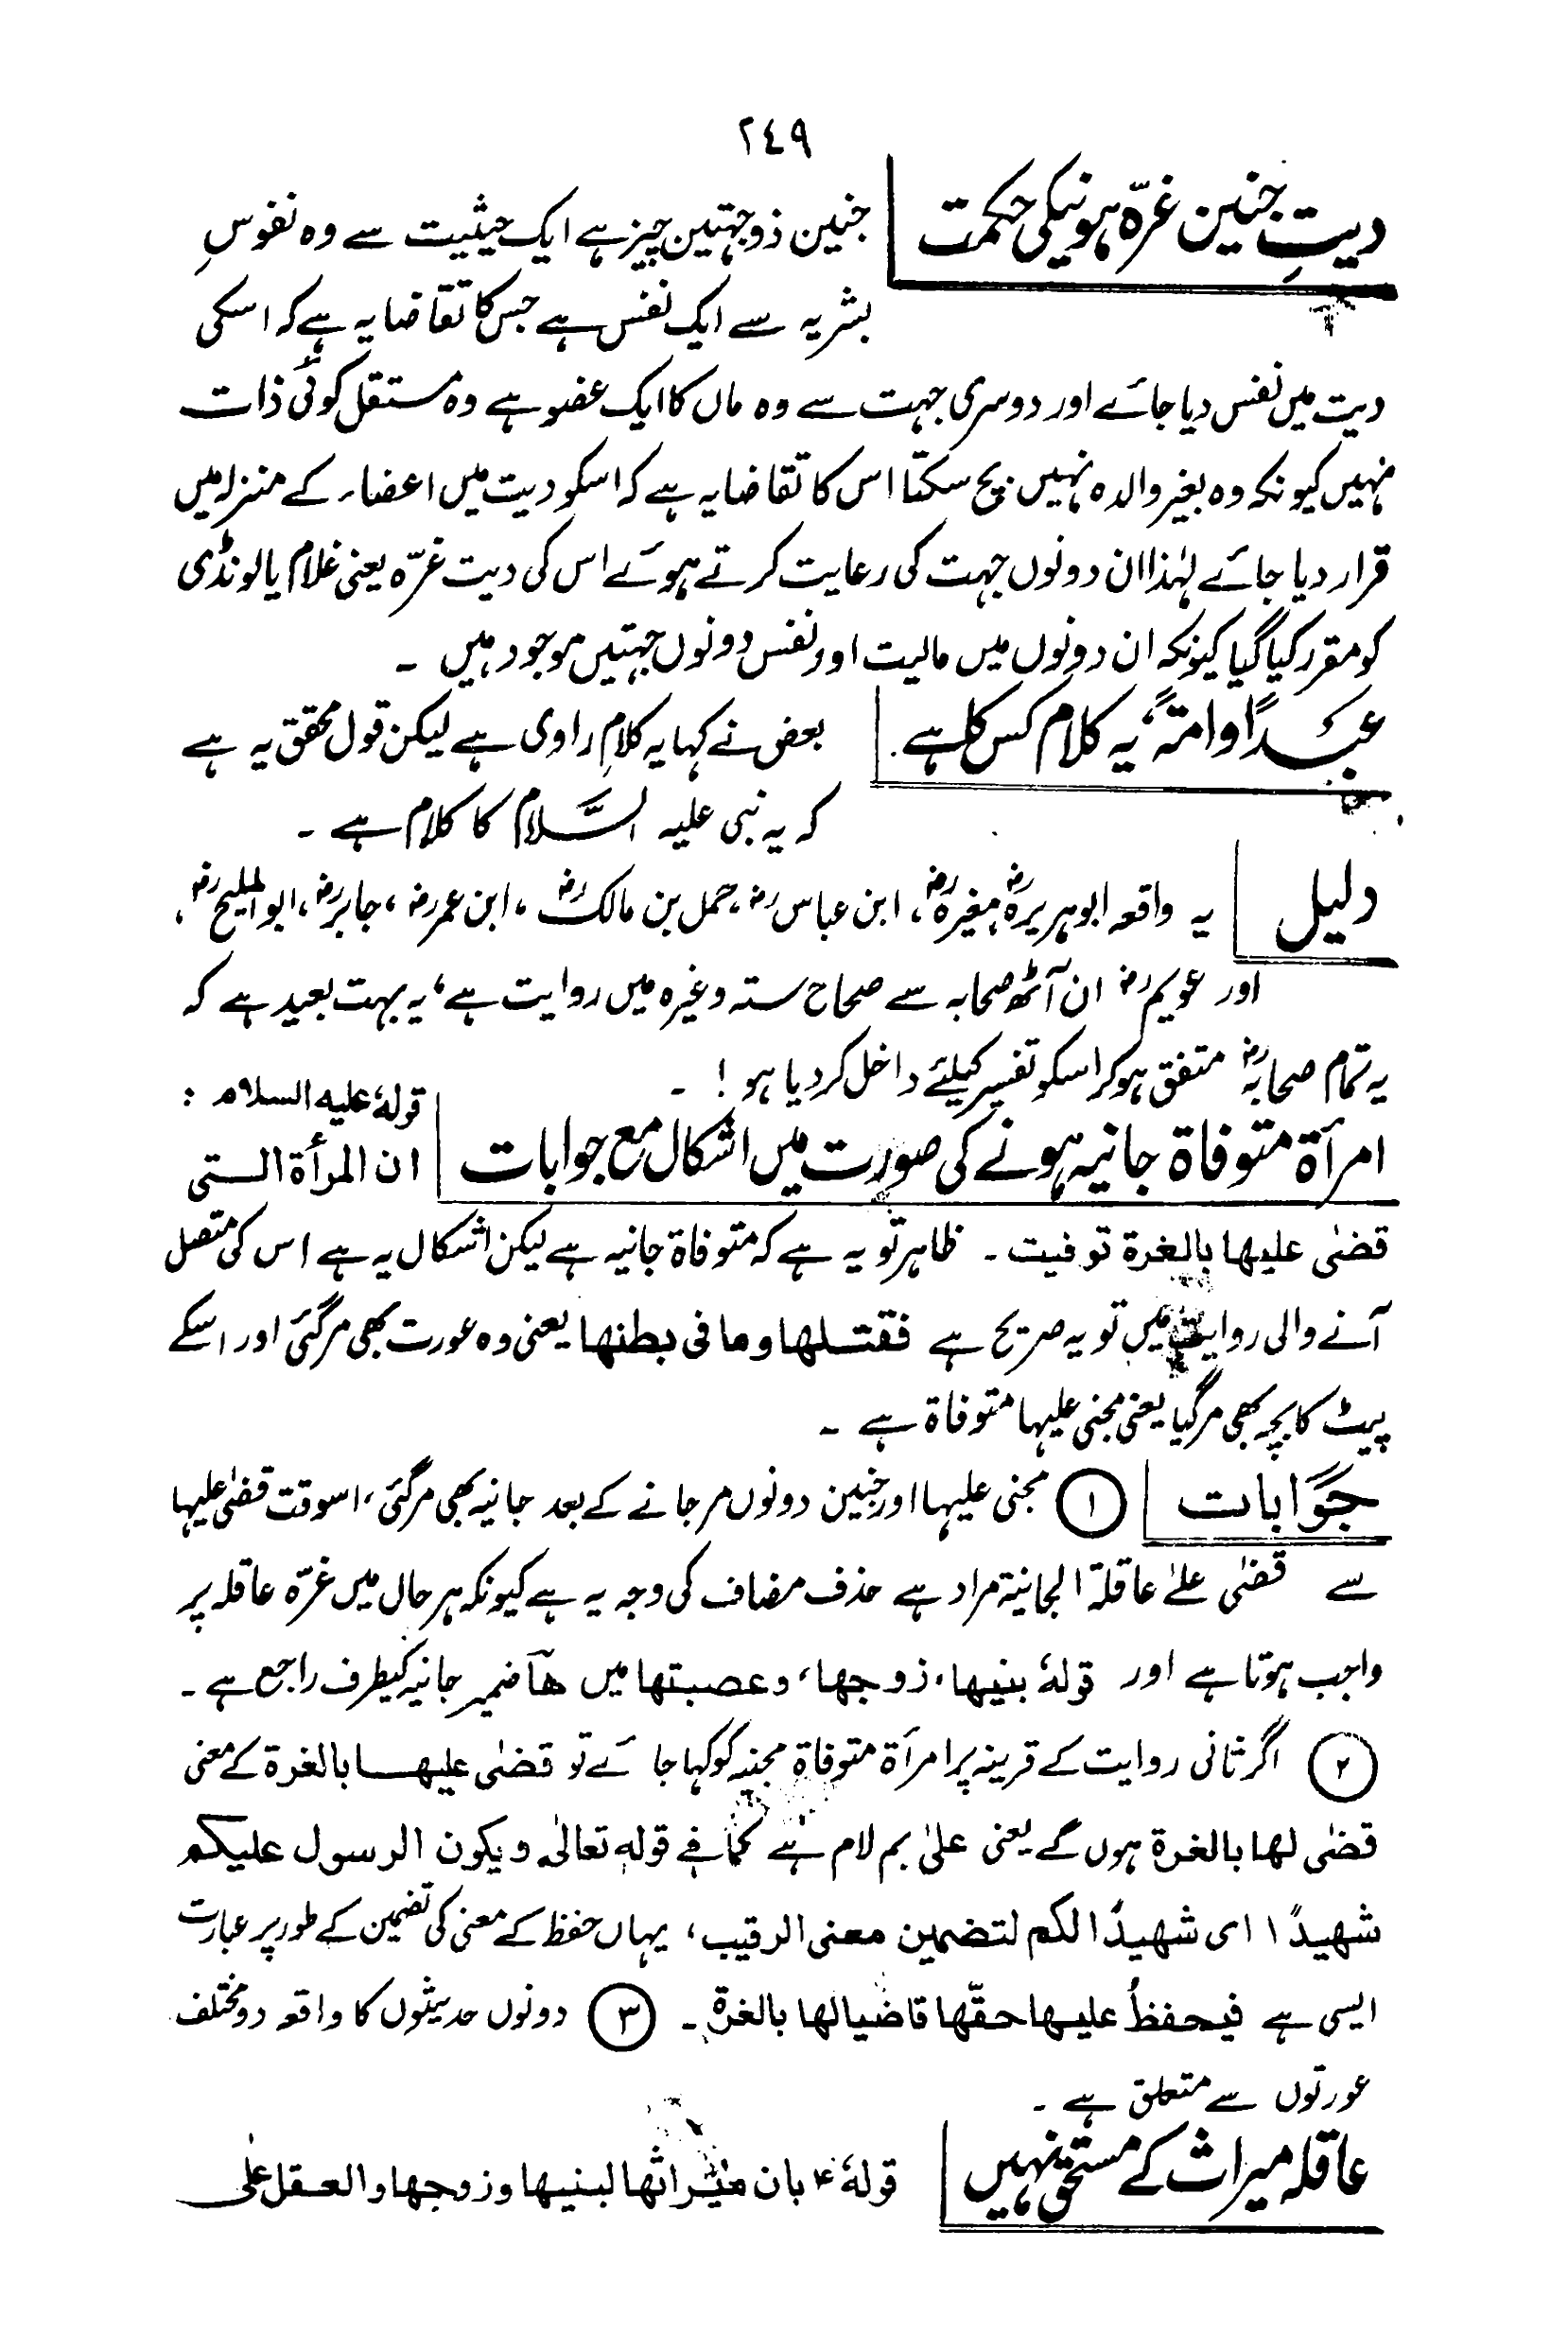 ۲٤۹
دیتِ جنین غرّہ ہونیکی حکمت جنین ذوجہتین چیز ہے ایک حیثیت سے وہ نفوسِ
بشریہ سے ایک نفس ہے جس کا تقاضا یہ ہے کہ اسکی
دیت میں نفس دیا جائے اور دوسری جہت سے وہ ماں کا ایک عضو ہے وہ مستقل کوئی ذات
نہیں کیونکہ وہ بغیر والدہ نہیں بچ سکتا اس کا تقاضا یہ ہے کہ اسکو دیت میں اعضاء کے منزلہ میں
قرار دیا جائے لہٰذا ان دونوں جہت کی رعایت کرتے ہوئے اس کی دیت غرّہ یعنی غلام یا لونڈی
کو مقرر کیا گیا کیونکہ ان دونوں میں مالیت اور نفس دونوں جہتیں موجود ہیں ۔
عبدًا وامۃً، یہ کلام کس کا ہے بعض نے کہا یہ کلامِ راوی ہے لیکن قول محقق یہ ہے
کہ یہ نبی علیہ السَّلام کا کلام ہے ۔
دلیل یہ واقعہ ابو ہریرہؓ، مغیرہؓ، ابن عباسؓ، حمل بن مالکؓ، ابن عمرؓ، جابرؓ، ابوالملیحؓ،
اور عویمؓ ان آٹھ صحابہ سے صحاح ستہ وغیرہ میں روایت ہے، یہ بہت بعید ہے کہ
یہ تمام صحابہؓ متفق ہوکر اسکو تفسیر کیلئے داخل کردیا ہو ! ۔
امرأۃ متوفاۃ جانیہ ہونے کی صورت میں اشکال مع جوابات قولہٗ علیہ السلام :
ان المرأة التی
قضٰی علیھا بالغرة توفیت ۔ ظاہر تو یہ ہے کہ متوفاۃ جانیہ ہے لیکن اشکال یہ ہے اس کی متصل
آنے والی روایت میں تو یہ صریح ہے فقتلھا وما فی بطنھا یعنی وہ عورت بھی مرگئی اور اسکے
پیٹ کا بچہ بھی مرگیا یعنی مجنی علیہا متوفاۃ ہے ۔
جوابات ① مجنی علیہا اور جنین دونوں مرجانے کے بعد جانیہ بھی مرگئی، اسوقت قضٰی علیہا
سے قضٰی علٰی عاقلۃ الجانیۃ مراد ہے حذف مضاف کی وجہ یہ ہے کیونکہ ہر حال میں غرّہ عاقلہ پر
واجب ہوتا ہے اور قولہٗ بنیھا، زوجھا، وعصبتھا میں ھآ ضمیر جانیہ کیطرف راجع ہے ۔
② اگر ثانی روایت کے قرینہ پر امرأۃ متوفاۃ مجنیہ کو کہا جائے تو قضٰی علیھا بالغرة کے معنی
قضٰی لھا بالغرة ہوں گے یعنی علیٰ بم لام ہے کما فی قولہٖ تعالٰی ویکون الرسول علیکم
شھیدًا ای شھیدًا لکم لتضمین معنی الرقیب، یہاں حفظ کے معنی کی تضمین کے طور پر عبارت
ایسی ہے فیحفظُ علیھا حقّھا قاضیا لھا بالغرة ۔ ③ دونوں حدیثوں کا واقعہ دو مختلف
عورتوں سے متعلق ہے ۔
عاقلہ میراث کے مستحق نہیں قولہٗ ؑ بان میراثھا لبنیھا وزوجھا والعقل علی